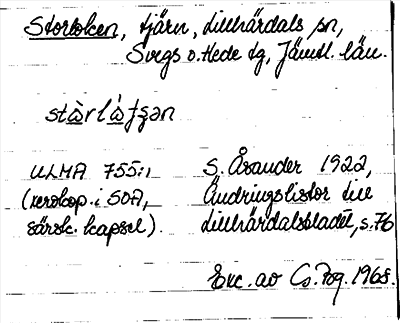 Storloken, tjärn, Lillhärdals sn,
Svegs o. Hede tg, Jämtl. län.
stàrlá
ULMA 755:1 S. Åsander 1922,
(xerokop. i SOA, Ändringslistor till
särsk. kapsel). Lillhärdalsbladet, s. 76
Exc. av Cs. Pog. 1968.